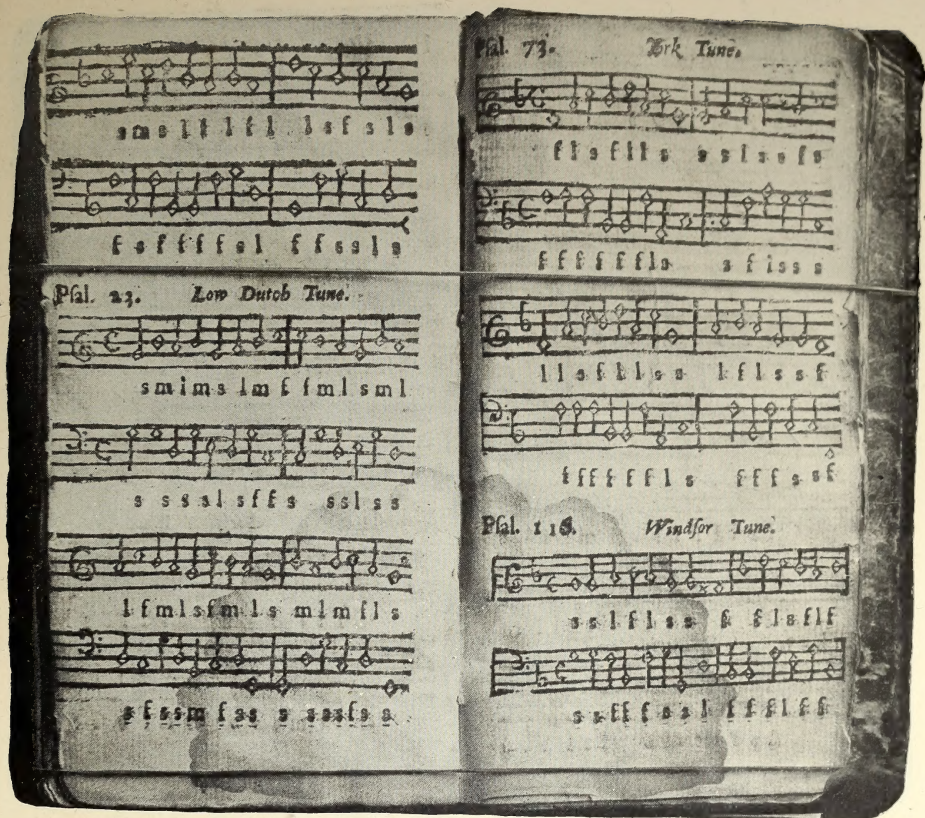 s m s l f l f l l s f s l s
f s f f f f s l f f s s l s
Psal. 23. Low Dutch Tune.
s m l m s l m f f m l s m l
s s s s l s f f s s s l s s
l f m l s f m l s m l m f l s
s f s s m f s s s s s s f s s
Psal. 73. York Tune.
f l s f l l s s s l s s f s
f f f f f f l s s f l s s s
l l s f l l s s l f l s s f
f f f f f f l s f f f s s f
Psal. 116. Windsor Tune.
s s l f l s s f f l s f l f
s s f f f s s l f f f l f f